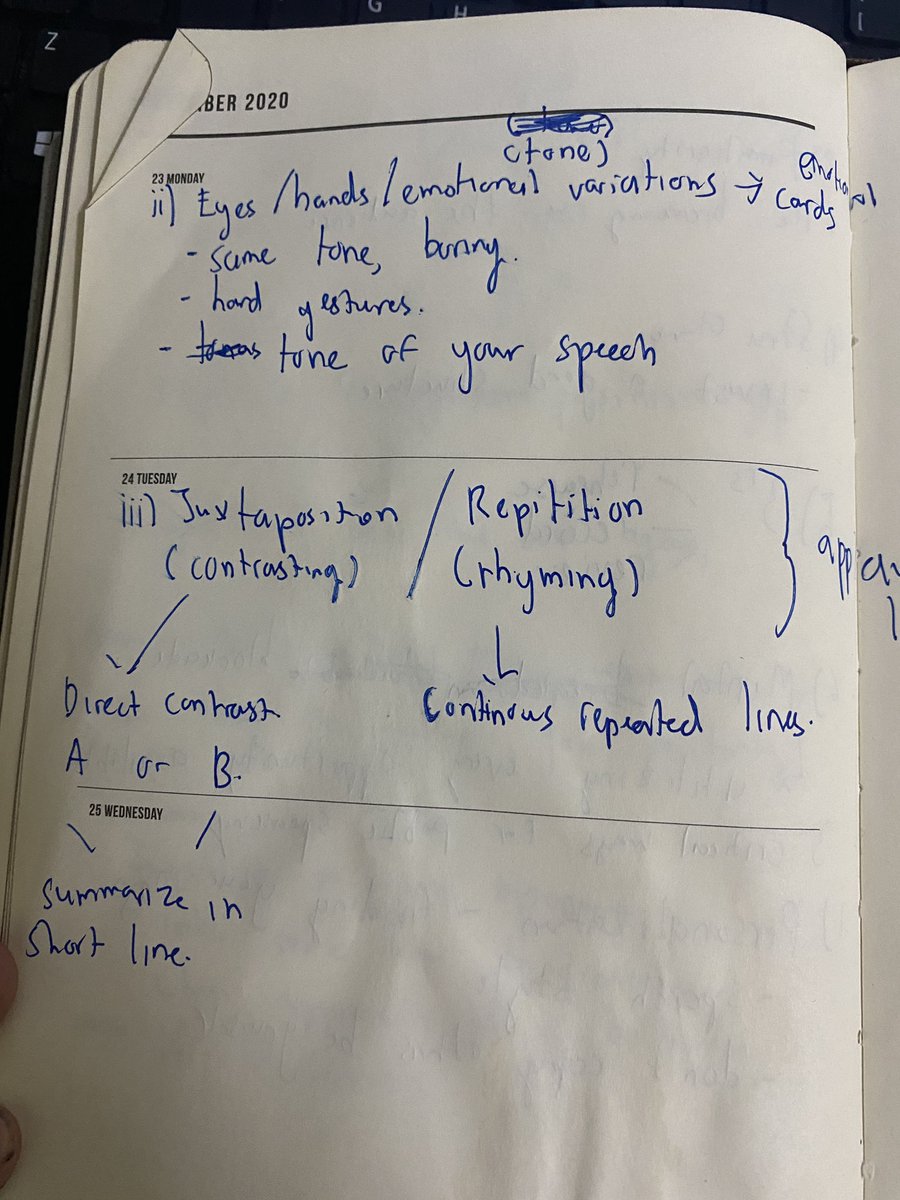 BER 2020
(tone)
23 MONDAY
ii) Eyes /hands/emotional variations → emotional cards
- same tone, boring.
- hand gestures.
- tone of your speech
24 TUESDAY
iii) Juxtaposition / Repitition
(contrasting) (rhyming)
Direct contrast Continous repeated lines.
A or B.
25 WEDNESDAY
Summarize in
short line.
Z
G
H